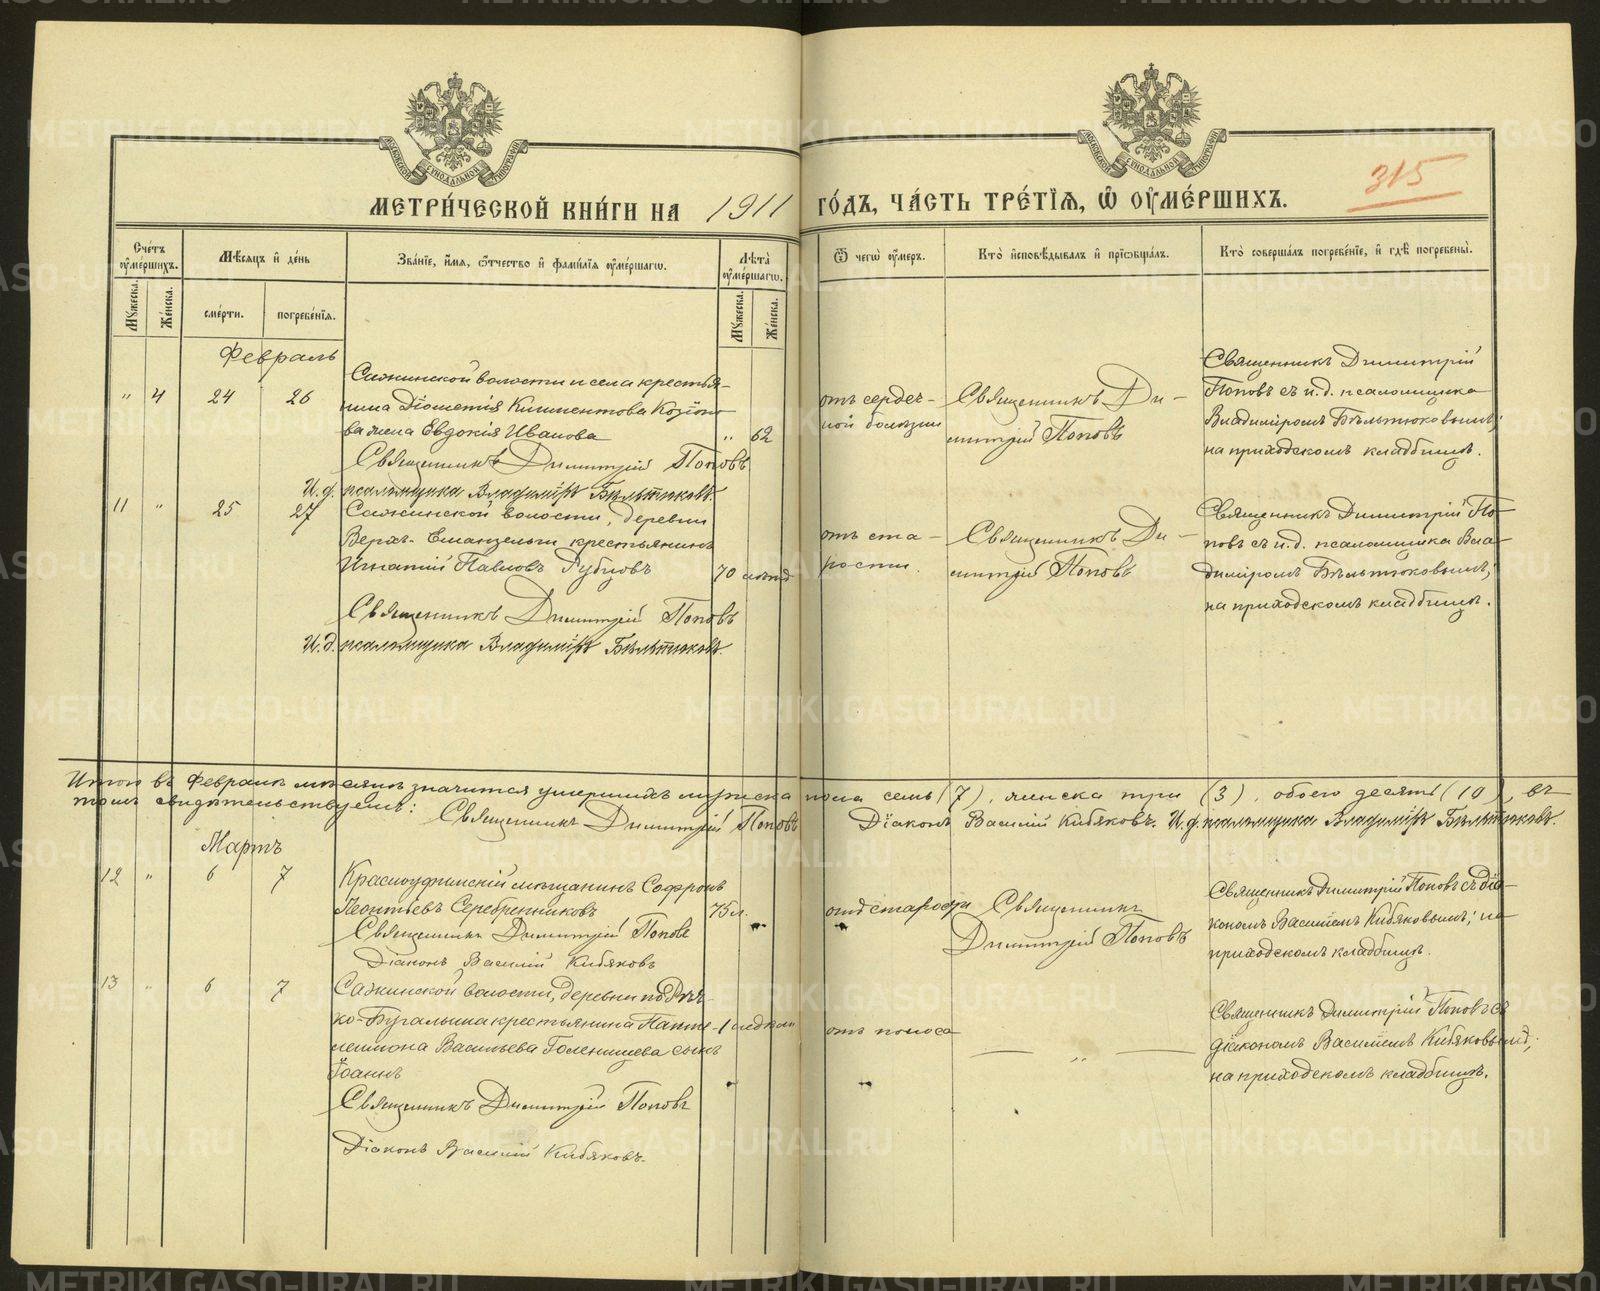 МЕТРИ́ЧЕСКОЙ КНИ́ГИ НА 1911 ГО́ДЪ, ЧА́СТЬ ТРЕ́ТІѦ, Ѿ ОУМЕ́РШИХЪ.
315
Сче́тъ оуме́ршихъ.
Му́жеска.
Же́нска.
Мѣ́сяцъ и день
сме́рти.
погребе́нія.
Зва́ніе, и́мя, о́тчество и фами́лія оуме́ршагѡ.
Лѣ́та оуме́ршагѡ.
Му́жеска.
Же́нска.
Ѿ чегѡ̀ оу́меръ.
Кто̀ исповѣ́дывалъ и прїѡбща́лъ.
Кто̀ соверша́лъ погребе́ніе, и гдѣ̀ погребены̀.
Февраль
" 4 24 26
Сажинской волости и села крестья-
нина Діомитія Климентова
жена Евдокія Иванова " 62
отъ сердеч-
ной болѣзни
Священникъ Ди-
митрій Поповъ
Священникъ Димитрій
Поповъ съ и.д. псаломщика
Владиміромъ Бѣльтюковымъ;
на приходскомъ кладбищѣ.
Священникъ Димитрій Поповъ
И.д. псаломщика Владиміръ Бѣльтюковъ.
11 " 25 27
Сажинской волости, деревни
Верхъ-Емандельги крестьянинъ
Игнатій Павловъ Рубцовъ 70 лѣтъ
отъ ста-
рости.
Священникъ Ди-
митрій Поповъ
Священникъ Димитрій По-
повъ съ и.д. псаломщика Вла-
диміромъ Бѣльтюковымъ;
на приходскомъ кладбищѣ.
Священникъ Димитрій Поповъ
И.д. псаломщика Владиміръ Бѣльтюковъ.
Итого въ Февралѣ мѣсяцѣ значится умершихъ мужеска пола семь (7), женска три (3), обоего десять (10), въ
томъ свидѣтельствуемъ: Священникъ Димитрій Поповъ Діаконъ Василій Кибяковъ. И.д. псаломщика Владиміръ Бѣльтюковъ.
Мартъ
12 " 6 7
Красноуфимскій мѣщанинъ Софронъ
Леонтіевъ Серебренниковъ 75 л.
отъ старости
Священникъ
Димитрій Поповъ
Священникъ Димитрій Поповъ съ діа-
кономъ Василіемъ Кибяковымъ; на
приходскомъ кладбищѣ.
Священникъ Димитрій Поповъ
Діаконъ Василій Кибяковъ
13 " 6 7
Сажинской волости, деревни по Рѣч-
ко-Бугалыша крестьянина Панте-
леимона Васильева Голенищева сынъ
Іоаннъ
отъ поноса
"
Священникъ Димитрій Поповъ съ
діакономъ Василіемъ Кибяковымъ;
на приходскомъ кладбищѣ.
Священникъ Димитрій Поповъ
Діаконъ Василій Кибяковъ.
METRIKI.GASO-URAL.RU